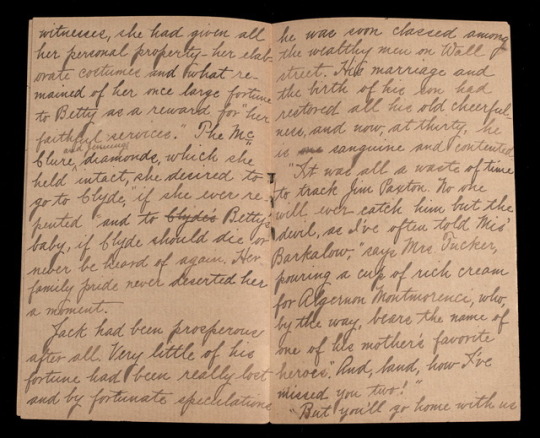 witnesses, she had given all
her personal property - her elab-
orate costumes and what re-
mained of her once large fortune
to Betty as a reward for "her
faithful services." The Mc
Clure diamonds, which she
held intact, she desired to
go to Clyde, "if she ever re-
pented" and to Clyde's Betty's
baby, if Clyde should die or
never be heard of again. Her
family pride never deserted her
a moment.
Jack had been prosperous
after all. Very little of his
fortune had been really lost
and by fortunate speculations
he was soon classed among
the wealthy men on Wall
street. His marriage and
the birth of his son had
restored all his old cheerful-
ness, and now, at thirty, he
is sanguine and contented.
"It was all a waste of time
to track Jim Paxton. No one
will ever catch him but the
devil, as I've often told Mis'
Barkalow," says Mrs. Tucker,
pouring a cup of rich cream
for Algernon Montmorenci, who,
by the way, bears the name of
one of his mother's favorite
heroes. "And, land, how I've
missed you two!"
"But you'll go home with us